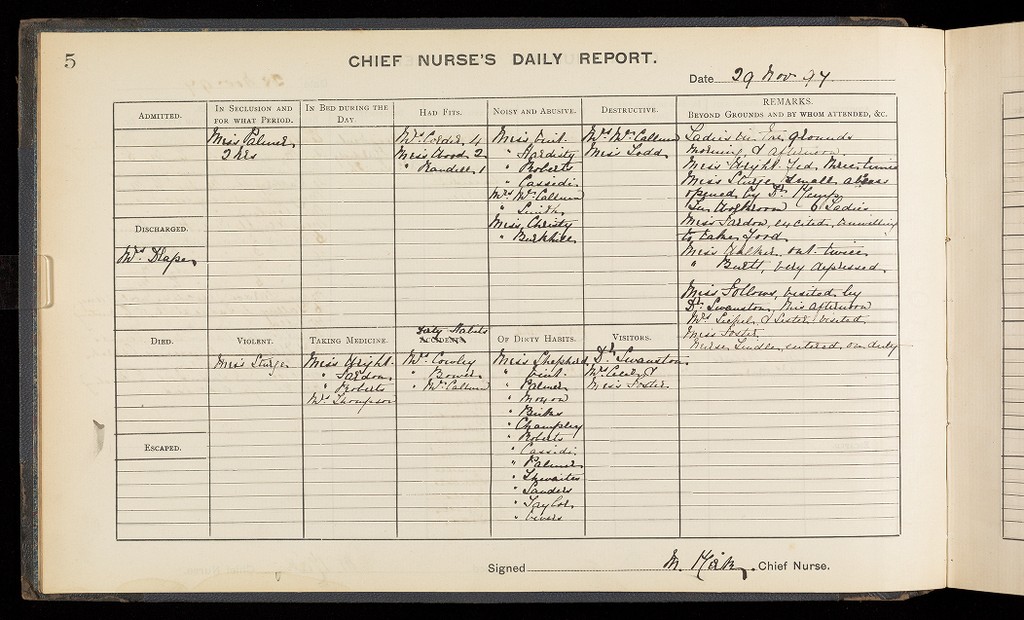 5
CHIEF NURSE'S DAILY REPORT.
Date 29 Nov 97.
ADMITTED.
DISCHARGED.
Mrs Draper
DIED.
ESCAPED.
IN SECLUSION AND
FOR WHAT PERIOD.
Miss Palmer
2 hrs
VIOLENT.
Miss Sturge
IN BED DURING THE
DAY.
TAKING MEDICINE.
Miss Wright
" Sardon
" Roberts
Mrs Thompson
HAD FITS.
Mrs Corder 4
Miss Wood 2
" Randell 1
Dirty Habits
ACCIDENTS.
Mrs Cowley
" Bower
" McCallum
NOISY AND ABUSIVE.
Miss Vint
" Hardisty
" Roberts
" Cassidi
Mrs McCallum
" Smith
Miss Christy
" Burkhill
OF DIRTY HABITS.
Miss Shepherd
" Vint
" Palmer
" Moxon
" Birks
" Champley
" Roberts
" Cassidi
" Palmer
" Thwaites
" Sanders
" Taylor
" Vivers
DESTRUCTIVE.
Mrs McCallum
Miss Todd
VISITORS.
Dr Swanston
Mrs &
Miss Foster
REMARKS.
BEYOND GROUNDS AND BY WHOM ATTENDED, &C.
Ladies in the grounds
morning & afternoon
Miss Wright fed three times
Miss Sturge small abcess
opened by Dr Kemp
In Workroom 6 Ladies
Miss Sardon, excited, unwilling
to take food
Miss Walker out twice
" Burtt, very depressed
Miss Follows, visited by
Dr Swanston, this afternoon
Mrs & Sister visited
Miss Foster
Nurse Lindley entered on duty
Signed M. Chief Nurse.